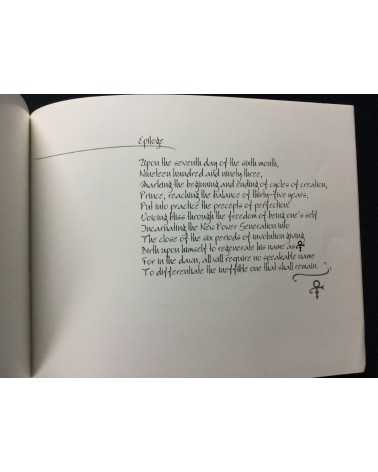 Epiloge
Upon the seventh day of the sixth month,
Nineteen hundred and ninety three,
Marking the beginning and ending of cycles of creation,
Prince, reaching the balance of thirty-five years,
Put into practice the precepts of perfection:
Voicing bliss through the freedom of being one's self
Incarnating the New Power Generation into
The close of the six periods of involution giving
Birth upon himself to regenerate his name as
For in the dawn, all will require no speakable name
To differentiate the ineffible one that shall remain.